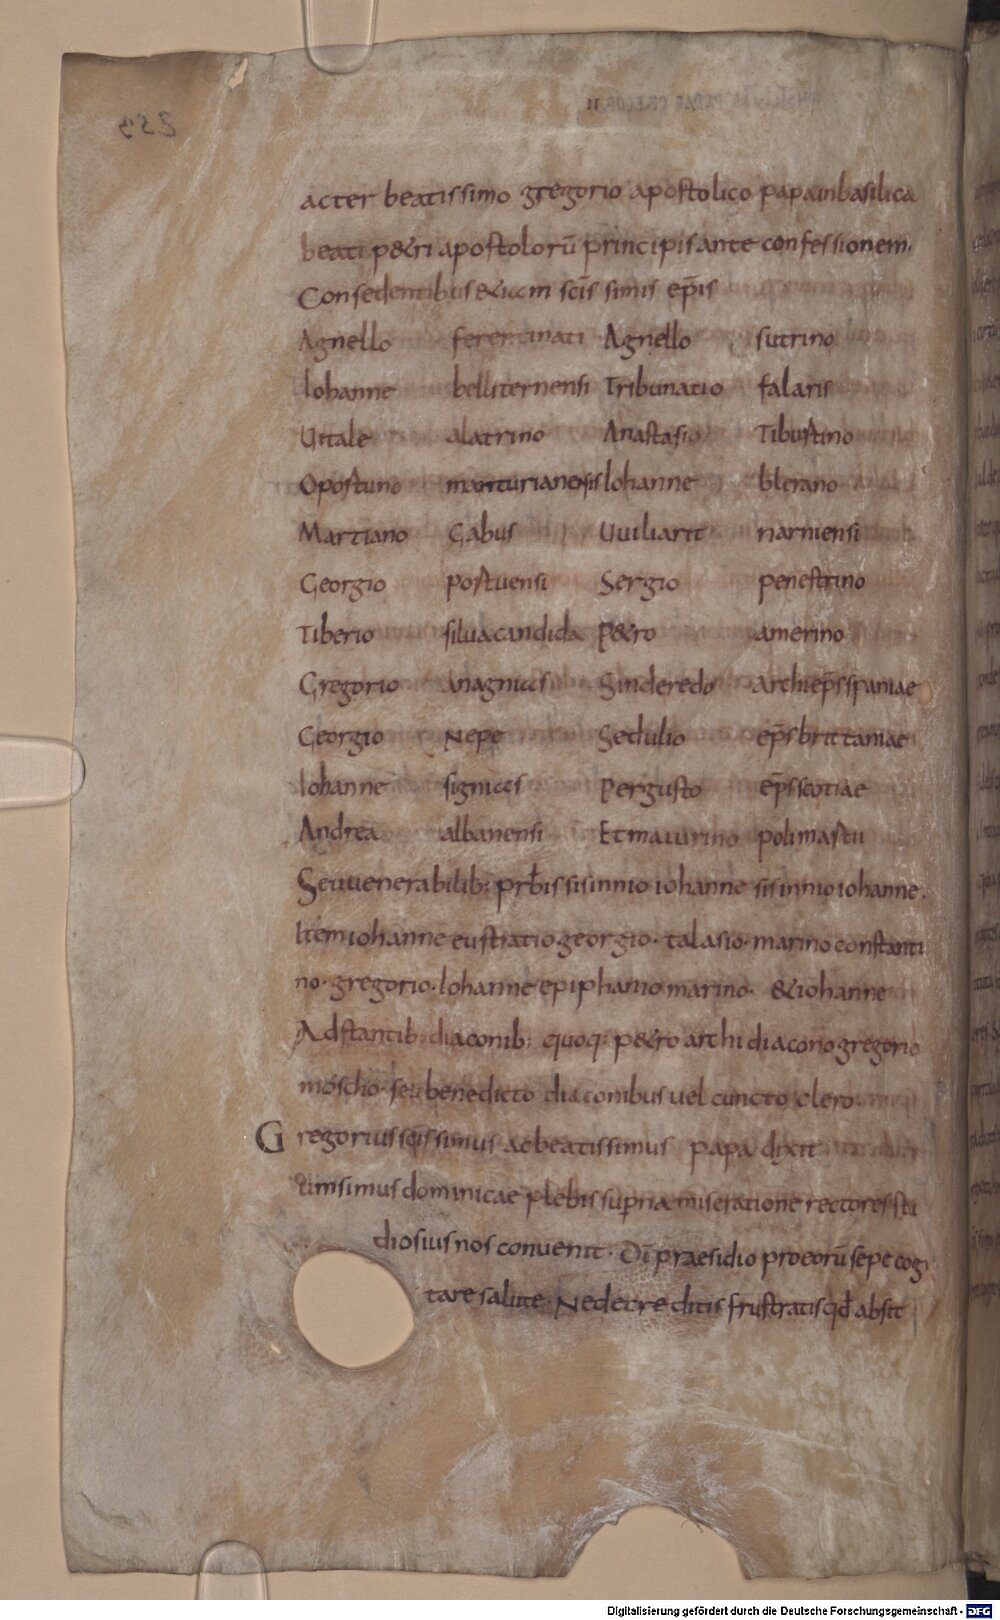 acter beatissimo gregorio apostolico papa inbasilica
beati p&ri apostolorū principis ante confessionem.
Consedentibus &iam scīs simis ep̄is
Agnello ferentinati Agnello sutrino
Iohanne belliternensi Tribunatio falaris
Uitale alatrino Anastasio Tibustino
Opostuno Iohanne blerano
Martiano Gabus Uuiliarit narniensi
Georgio postuensi Sergio penestrino
Tiberio silua candida P&ro amerino
Gregorio anagnices Sinderedo archiep̄s spaniae
Georgio Nepe Sedulio ep̄s brittaniae
Iohanne signices Pergusto ep̄s scotiae
Andrea albanensi Et maiurino polimastu
Seu uenerabilib; prb̄is sisinnio iohanne sisinnio iohanne.
Item iohanne eustratio georgio· talasio· marino constanti
no· gregorio· Iohanne epiphanio marino· &iohanne
Adstantib; diaconib; quoq; p&ro archi diacono gregorio
moscho· seu benedicto diaconibus uel cuncto clero
Gregorius scīssimus ac beatissimus papa dixit
dimsimus dominicae plebis supna miseratione rectores stu
diosius nos conuenit· Dī praesidio pro eorū sepe cogi
tare salute· Ne decreditis frustratis qd̄ absit